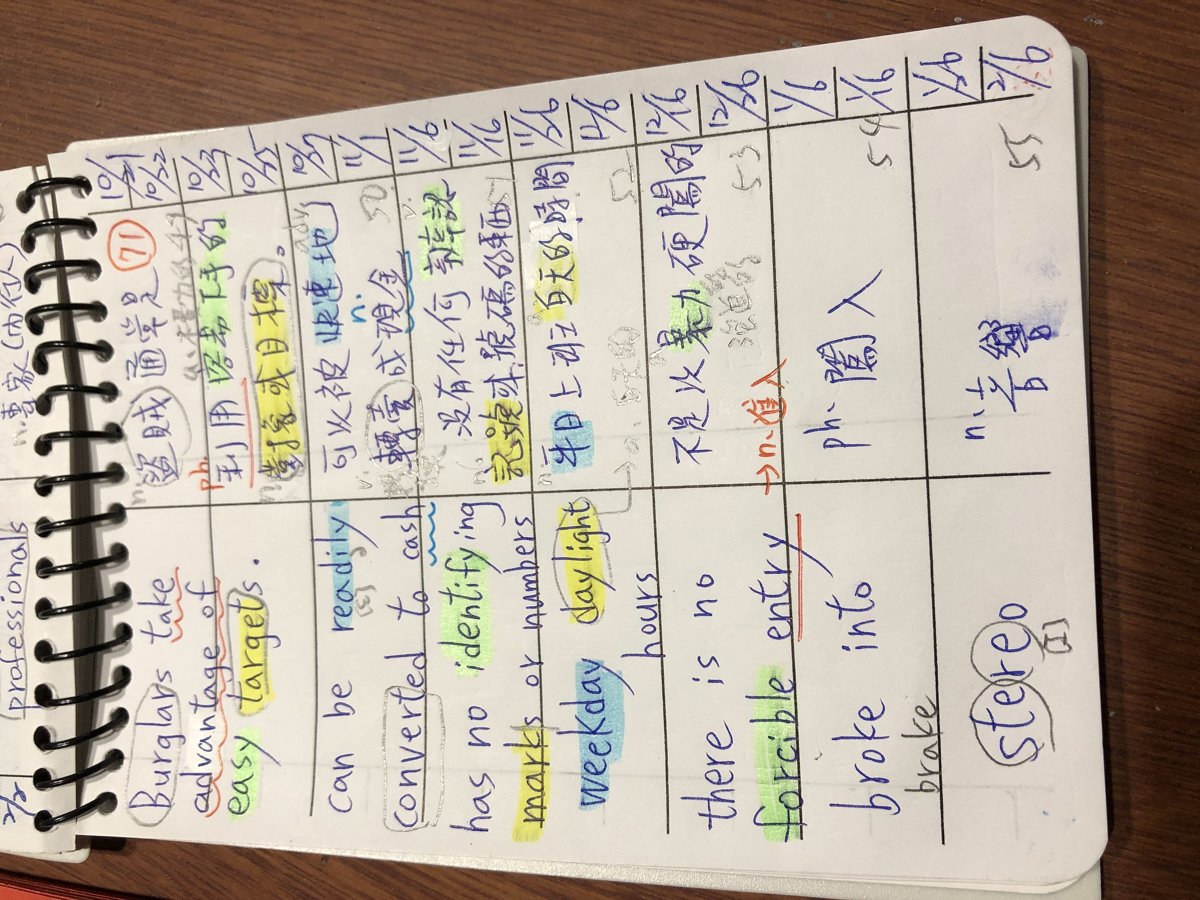 professionals
n.專家(內行人)
2/2
Burglars take
advantage of
easy targets.
71
n.
盜賊 通常是
ph.
利用 容易下手的
對象或目標。
10/21
10/22
10/23
10/25
can be readily
converted to cash
has no identifying
marks or numbers
adv
可以被 快速地
n.
轉賣 成現金
50
v.
沒有任何 辨認
記號或號碼的東西
51
10/27
11/1
11/6
11/16
weekday daylight
hours
n.
平日上班 白天的時間
52
11/26
12/6
there is no
forcible entry
不是以 暴力 硬闖的
→n.進入
53
12/16
12/26
broke into
brake
ph. 闖入
54
1/6
1/16
stereo
[I]
n.音響
55
1/26
2/6